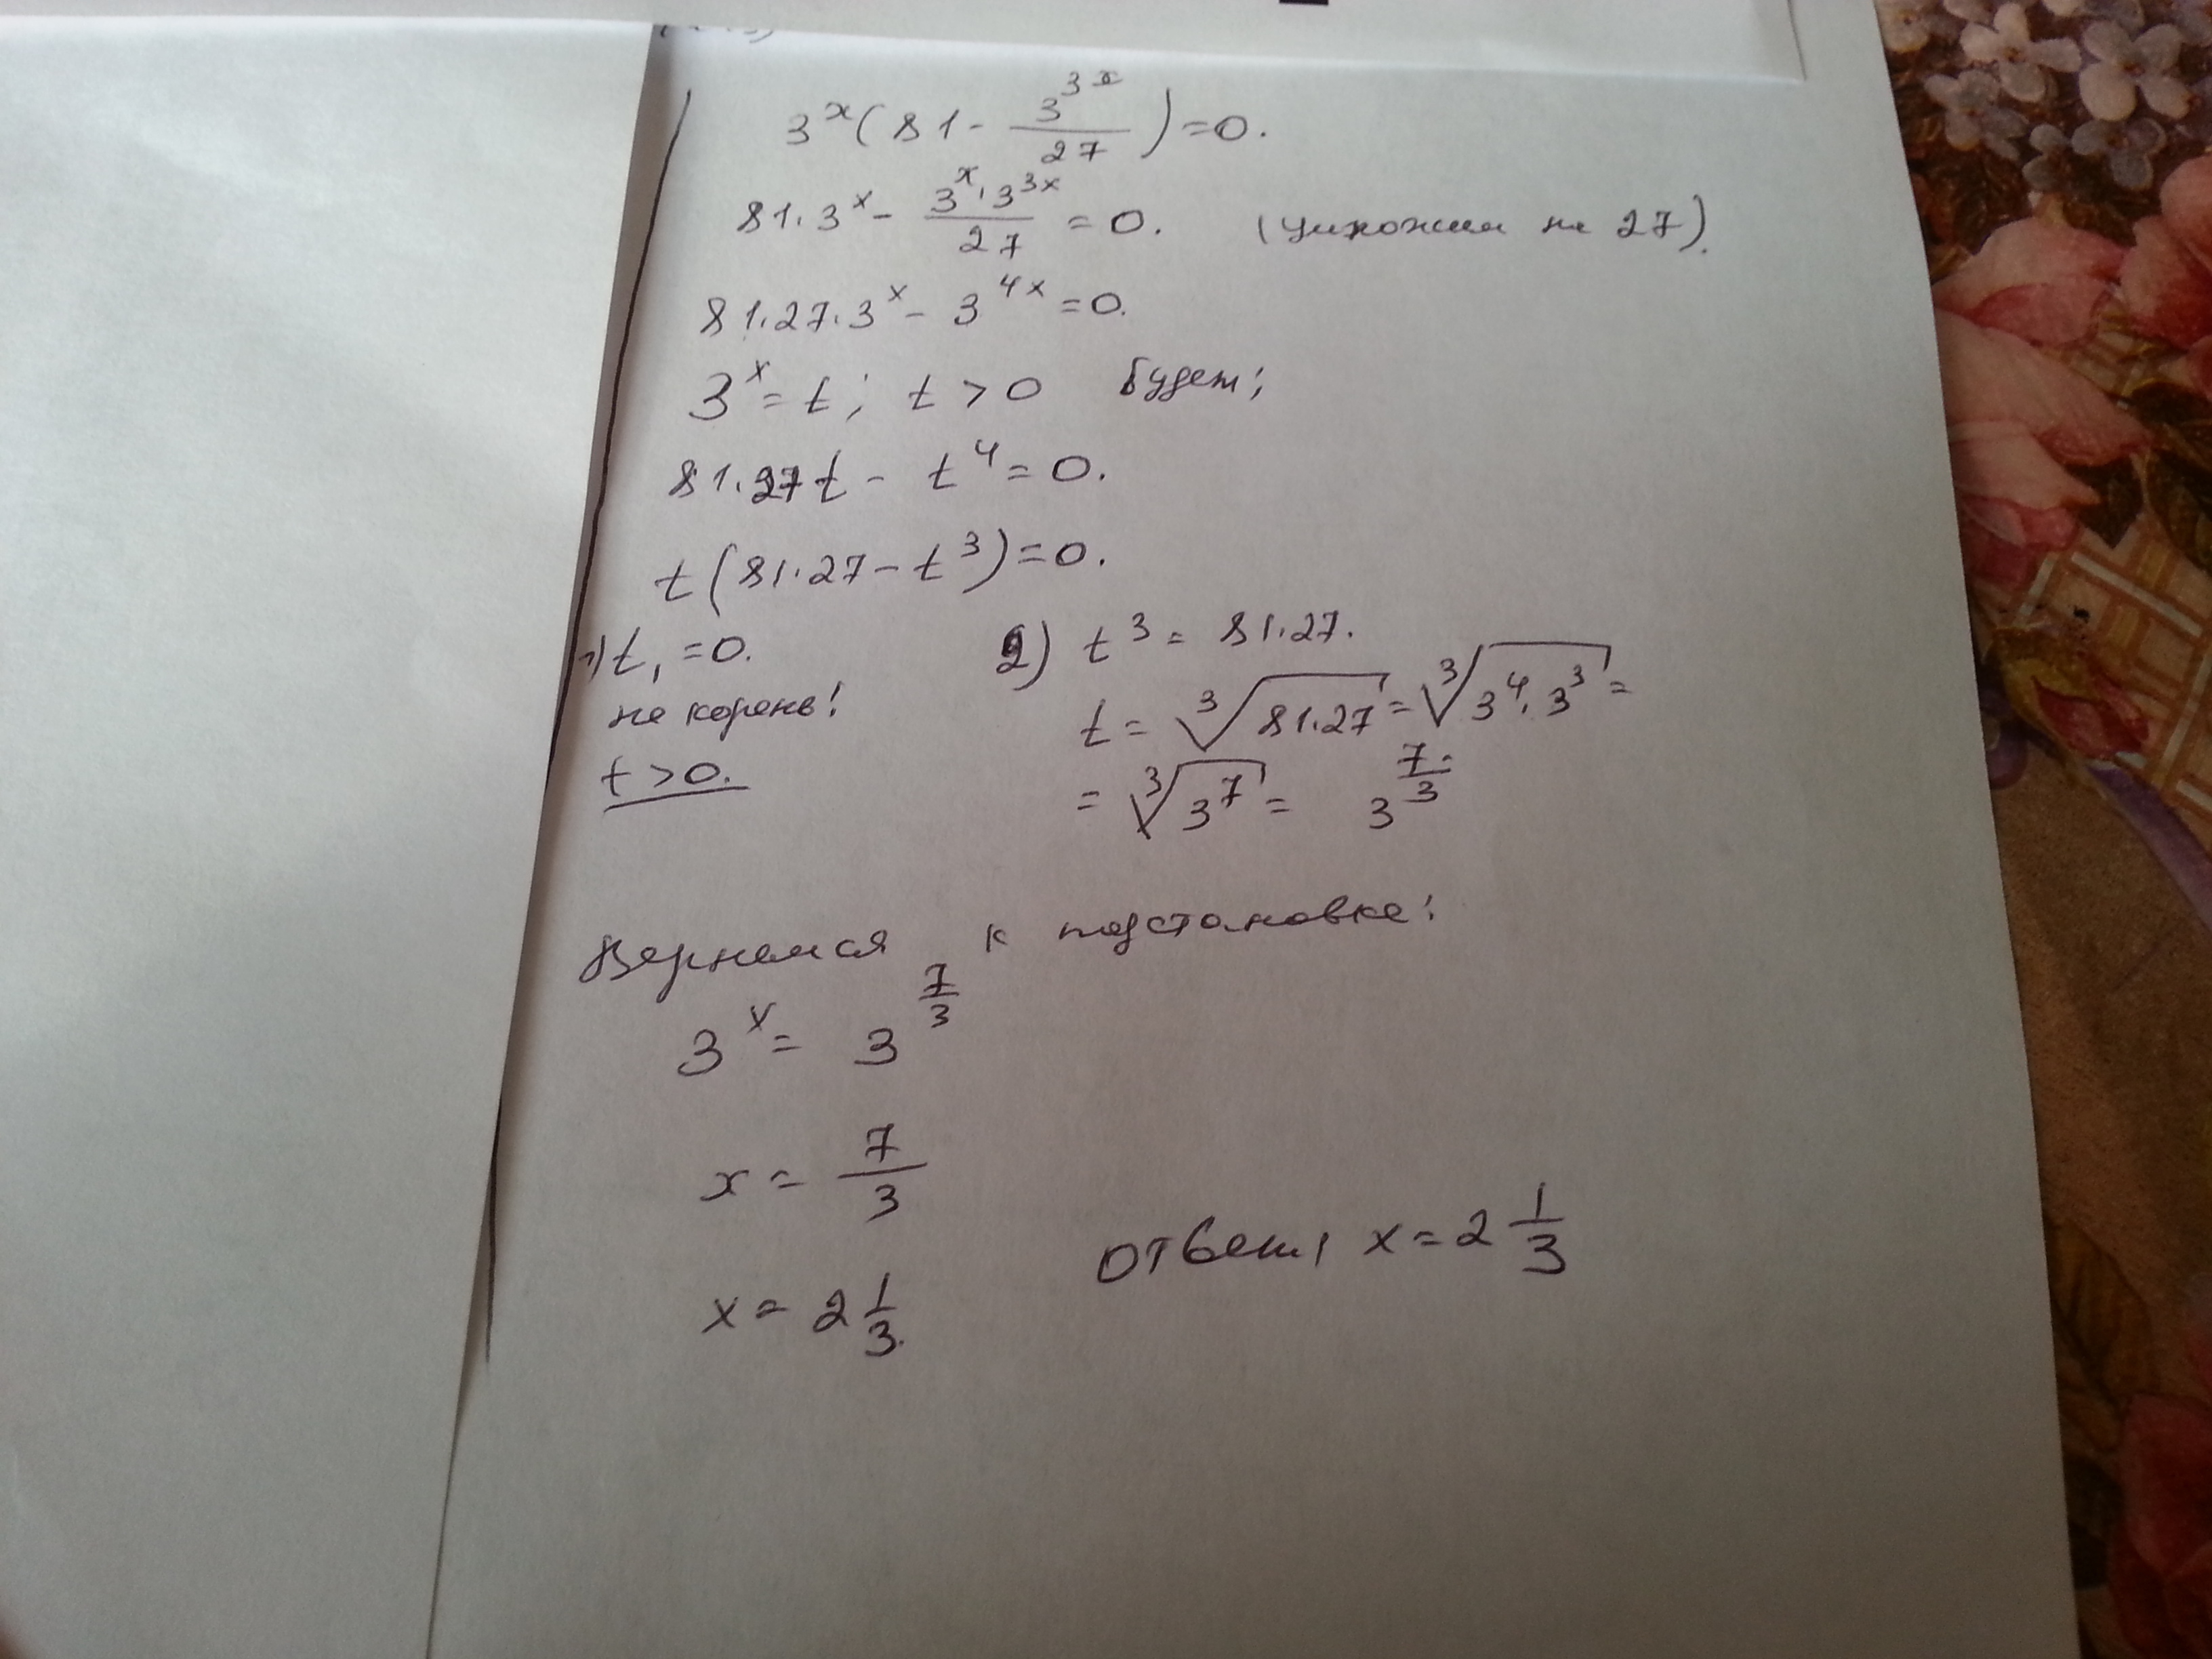 3^x(81 - 3^{3x}/27) = 0.
81·3^x - 3^x·3^{3x}/27 = 0. (умножим на 27).
81·27·3^x - 3^{4x} = 0.
3^x = t; t > 0 Будет;
81·27t - t^4 = 0.
t(81·27 - t^3) = 0.
1) t₁ = 0. 2) t^3 = 81·27.
не корень! t = ∛(81·27) = ∛(3^4·3^3) =
t > 0. = ∛(3^7) = 3^{7/3}
Вернемся к подстановке:
3^x = 3^{7/3}
x = 7/3
x = 2 1/3. Ответ, x = 2 1/3